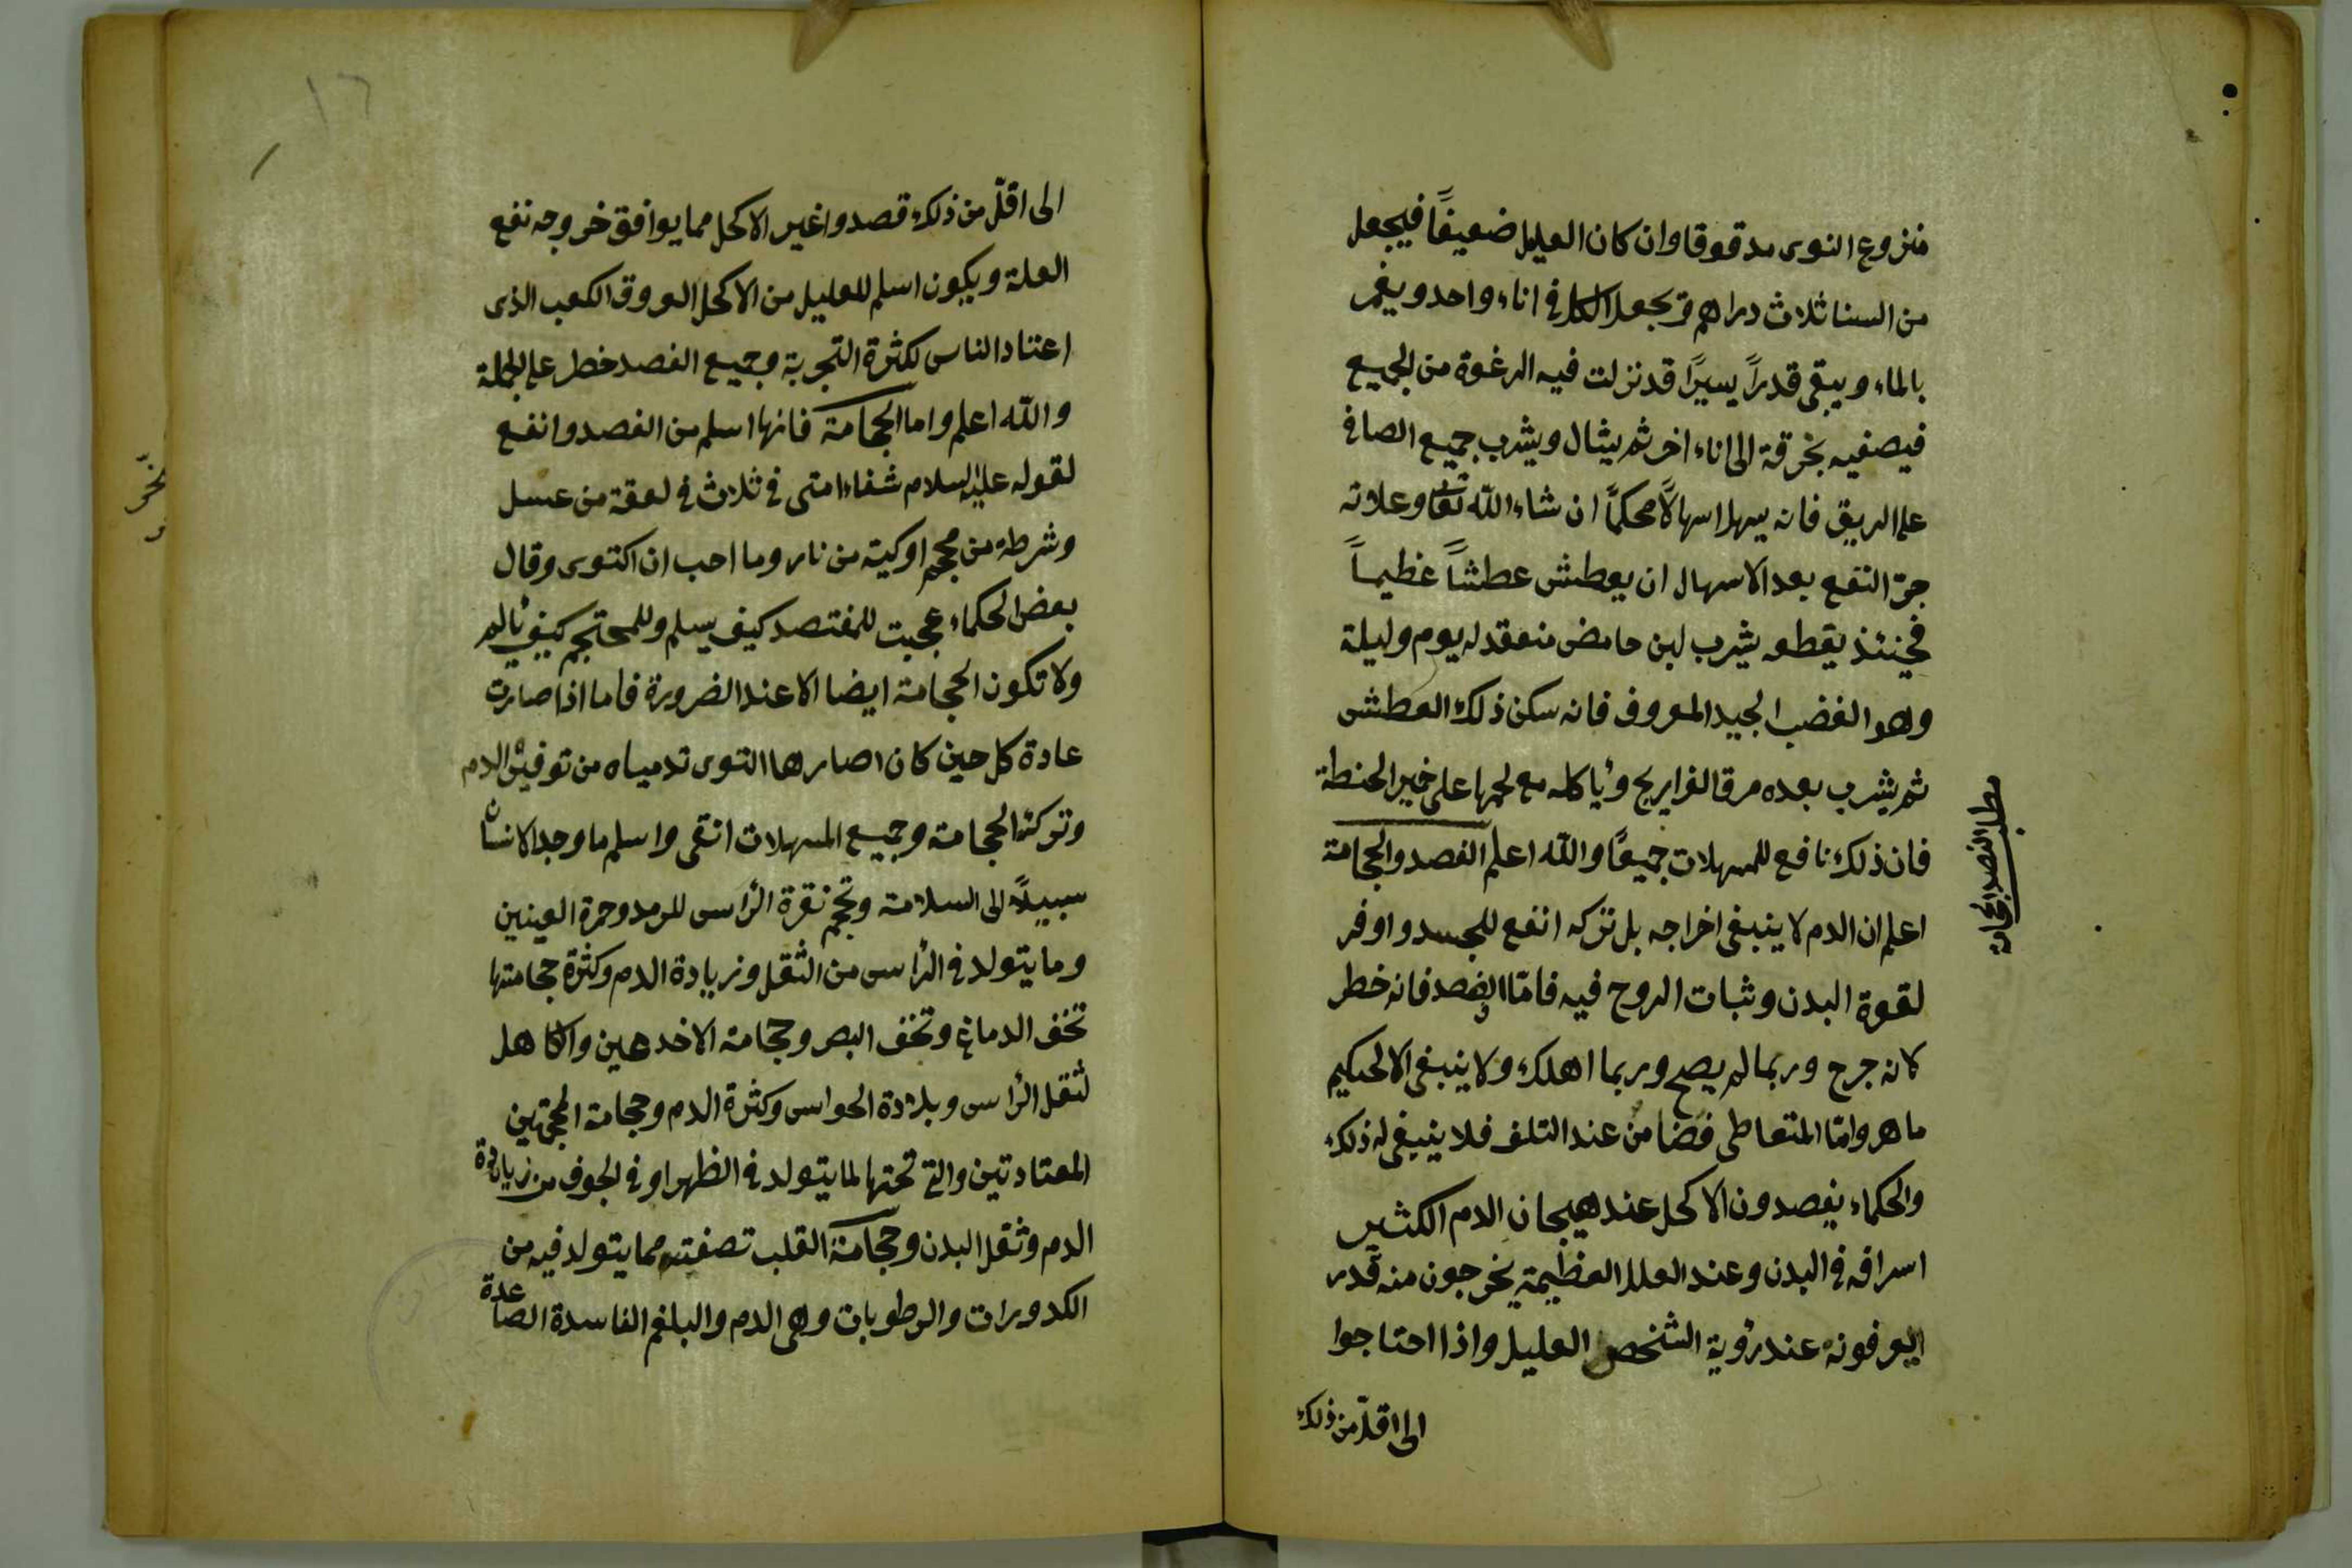 منزوع النوى مدقوقا وان كان العليل ضعيفًا فيجعل
من السنا ثلاث دراهم ويجعل الكل في اناء واحد ويغمر
بالماء ويبقى قدراً يسيرًا قد نزلت فيه الرغوة من الجميع
فيصفيه بخرقة الى اناء اخر ثم يشال ويشرب جميع الصافي
على الريق فانه يسهل اسهالًا محكمًا ان شاء الله تعا وعلاته
جرّ النفع بعد الاسهال ان يعطش عطشاً عظيماً
فحينئذ يقطعه يشرب لبن حامض منعقد له يوم وليلة
وهو الغضب الجيد المعروف فانه سكن ذلك العطش
ثم يشرب بعده مرق الفراريج وياكله مع لحمها على خمير الحنطة
فان ذلك نافع للمسهلات جميعًا والله اعلم الفصد والحجامة
اعلم ان الدم لا ينبغي اخراجه بل تركه انفع للجسد واوفر
لقوة البدن وثبات الروح فيه فامّا الفصد فانه خطر
لانه جرح وربما لم يصح وربما اهلك ولا ينبغي الا لحكيم
ماهر وامّا المتعاطي فضامن عند التلف فلا ينبغي له ذلك
والحكماء يفصدون الاكحل عند هيجان الدم الكثير
اسرافه في البدن وعند العلل العظيمة يخرجون منه قدر
ايعرفونه عند رؤية الشخص العليل واذا احتاجوا
الى اقلّ من ذلك
مطلب الفصد والحجامة
١٦
الى اقلّ من ذلك قصدوا غير الاكحل مما يوافق خروجه نفع
العلة ويكون اسلم للعليل من الاكحل العروق الكعب الذي
اعتناد الناس لكثرة التجربة وجميع الفصد خطر على الجملة
والله اعلم واما الحجامة فانها اسلم من الفصد وانفع
لقوله عليه السلام شفاء امتى في ثلاث في لعقة من عسل
وشرطة من محجم او كية من نار وما احب ان اكتوى وقال
بعض الحكماء عجبت للمفتصد كيف يسلم وللمحتجم كيف يألم
ولا تكون الحجامة ايضا الا عند الضرورة فاما اذا صارت
عادة كل حين كان اصارها التوى تدمياه من توفيش الدم
وترك الحجامة وجميع المسهلات انقى واسلم ما وجد الانسان
سبيلاً الى السلامة وتحجم نقرة الرأس للرمد وحمرة العينين
وما يتولد في الرأس من الثقل وزيادة الدم وكثرة حجامتها
تخف الدماغ وتخف البصر وحجامة الاخدعين والكاهل
لثقل الرأس وبلادة الحواس وكثرة الدم وحجامة المحجمتين
المعتادتين والتي تحتها لما يتولد في الظهر او في الجوف من زيادة
الدم وثقل البدن وحجامة القلب تصفته مما يتولد فيه من
الكدورات والرطوبات وهى الدم والبلغم الفاسدة الصاعدة